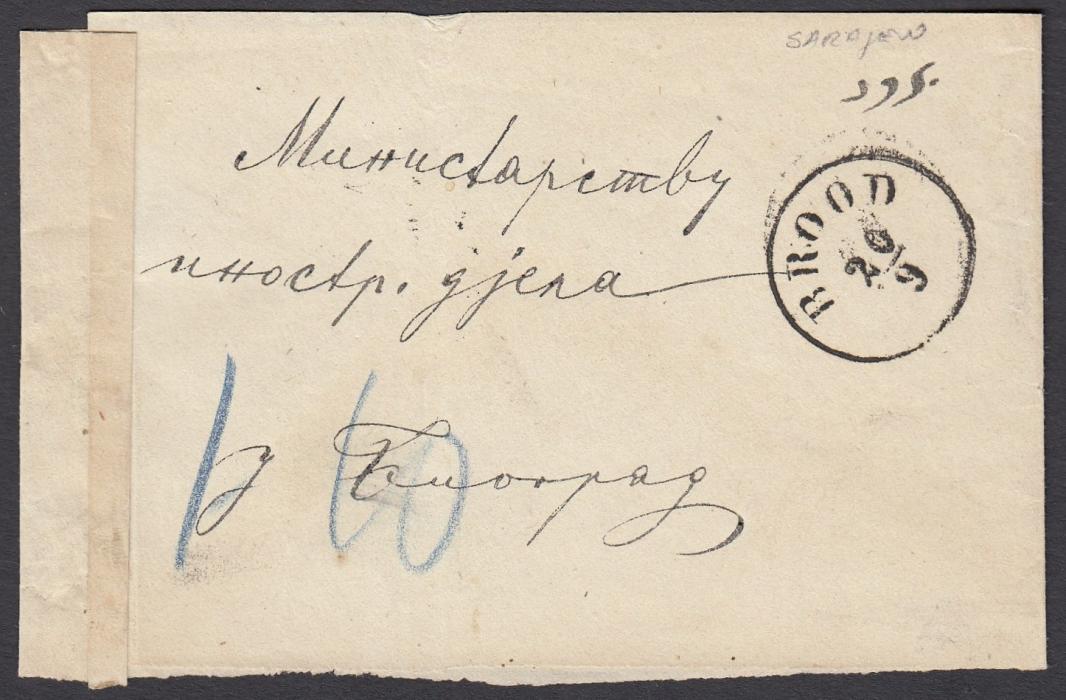 SARAJEVO
Министарству
иностр. дјела
BROOD
20/9
у Биоград